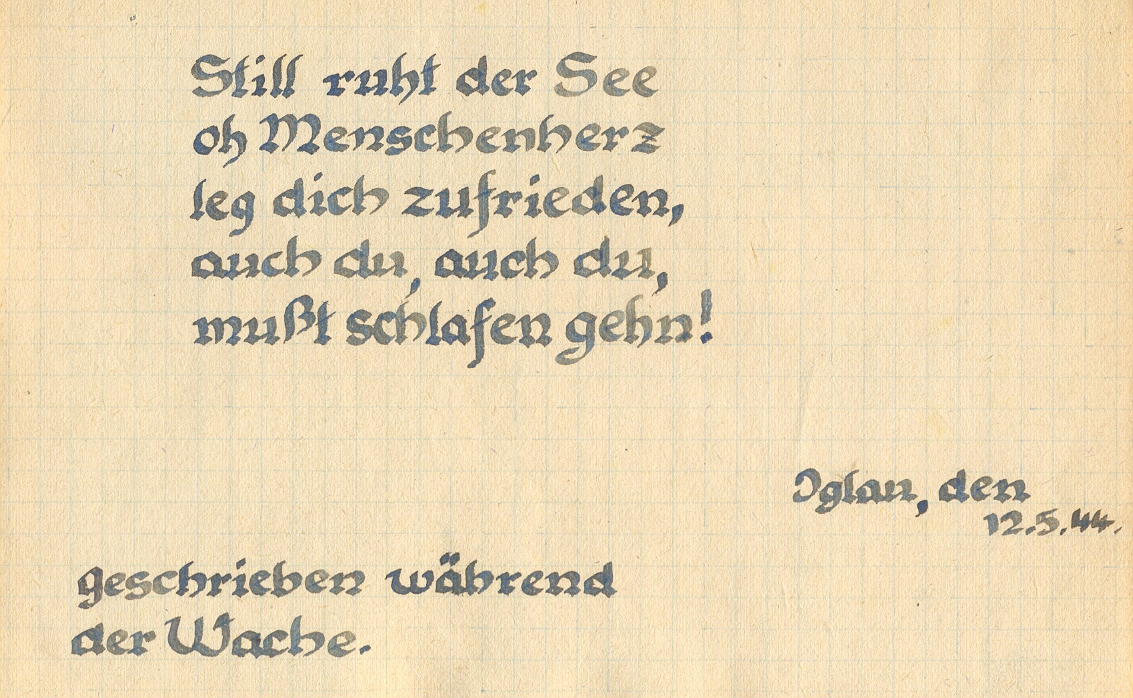 Still ruht der See
oh Menschenherz
leg dich zufrieden,
auch du, auch du,
mußt schlafen gehn!
Iglau, den
12.5.44.
geschrieben während
der Wache.